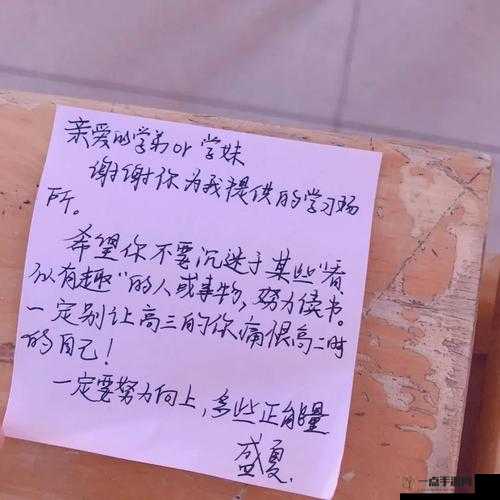 亲爱的学弟or学妹
谢谢你为我提供的学习场
所。
希望你不要沉迷于某些"看
似有趣"的人或事物，努力读书。
一定别让高三的你痛恨高二时
的自己！
一定要努力向上，多些正能量
盛夏.
一点手游网